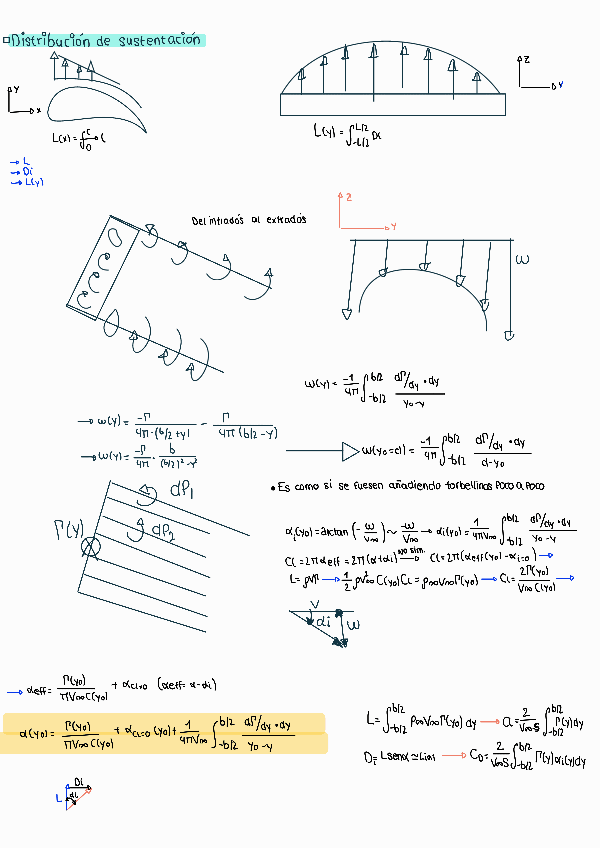 Distribución de sustentación
y
x
L(x) = ∫₀ᶜ → L
z
y
L(y) = ∫_{-L/2}^{L/2} Di
→ L
→ Di
→ L(y)
Del intradós al extradós
z
y
ω
ω(y) = -1/4π ∫_{-b/2}^{b/2} dΓ/dy · dy / y₀-y
→ ω(y) = -Γ / 4π·(b/2+y) - Γ / 4π(b/2-y)
→ ω(y) = -Γ/4π · b / (b/2)²-y²
ω(y₀=d) = -1/4π ∫_{-b/2}^{b/2} dΓ/dy · dy / d-y₀
dΓ₁
Γ(y)
dΓ₂
• Es como si se fuesen añadiendo torbellinos poco a poco
αᵢ(y₀) = arctan(-ω/V∞) ~ -ω/V∞ → αi(y₀) = 1/4πV∞ ∫_{-b/2}^{b/2} dΓ/dy · dy / y₀-y
CL = 2π αeff = 2π(α+αi) no sim. → CL = 2π(αeff(y₀) - α_{L=0}) →
L = ρVΓ → 1/2 ρV²∞ C(y₀) CL = ρ∞V∞Γ(y₀) → CL = 2Γ(y₀) / V∞ C(y₀) →
V
αi
ω
→ αeff = Γ(y₀) / πV∞C(y₀) + α_{CL=0} (αeff = α-αi)
α(y₀) = Γ(y₀) / πV∞C(y₀) + α_{CL=0}(y₀) + 1/4πV∞ ∫_{-b/2}^{b/2} dΓ/dy · dy / y₀-y
L = ∫_{-b/2}^{b/2} ρ∞V∞Γ(y₀) dy → CL = 2/V∞S ∫_{-b/2}^{b/2} Γ(y)dy
Di = L senα ≃ Lαi → CD = 2/V∞S ∫_{-b/2}^{b/2} Γ(y)αi(y)dy
Di
L
αi